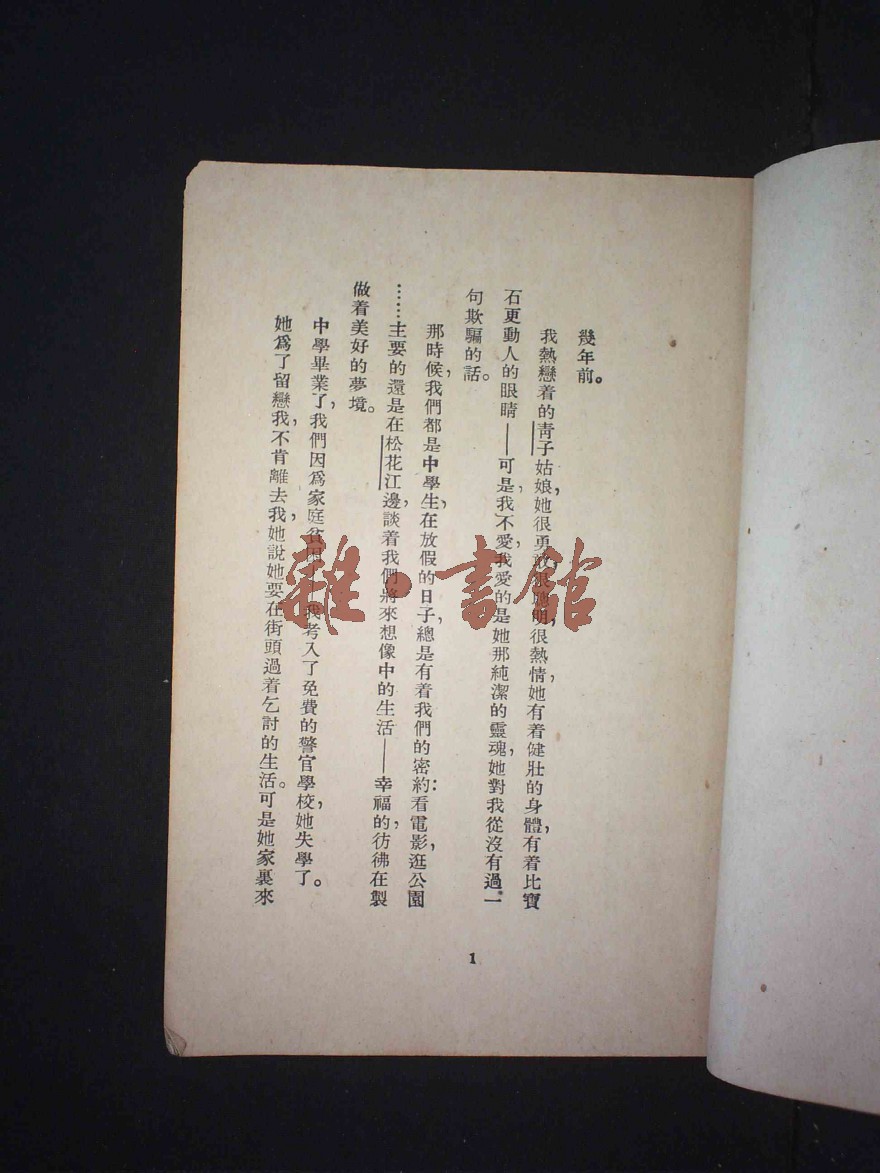 幾年前。
我熱戀着的靑子姑娘，她很勇敢，很聰明，很熱情，她有着健壯的身體，有着比寶
石更動人的眼睛——可是，我不愛，我愛的是她那純潔的靈魂，她對我從沒有過一
句欺騙的話。
那時候，我們都是中學生，在放假的日子，總是有着我們的密約：看電影，逛公園
……主要的還是在松花江邊，談着我們將來想像中的生活——幸福的，彷彿在製
做着美好的夢境。
中學畢業了，我們因爲家庭貧困，我考入了免費的警官學校，她失學了。
她爲了留戀我，不肯離去我，她說她要在街頭過着乞討的生活。可是她家裏來
1
雜·書館